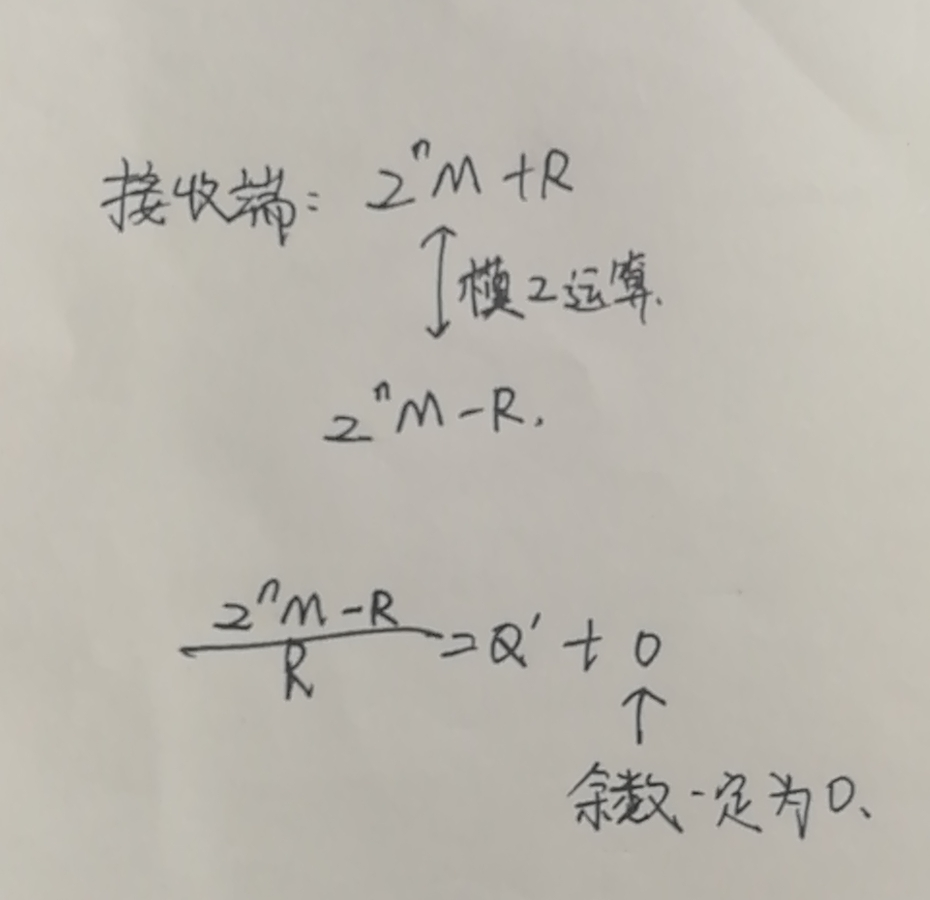 接收端: 2ⁿM+R
↕模2运算.
2ⁿM-R.
2ⁿM-R
R
=Q'+0
↑
余数一定为0、